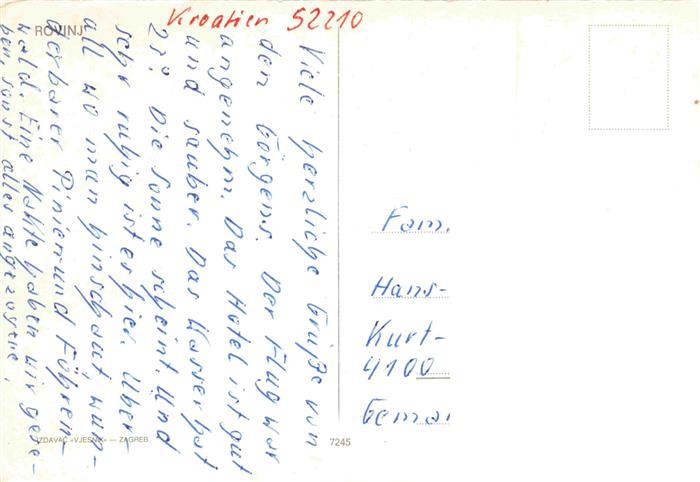 Kroatien 52210
ROVINJ
Viele herzliche Grüße von
den Görgens. Der Flug war
angenehm. Das Hotel ist gut
und sauber. Das Wasser hat
23°. Die Sonne scheint. Und
sehr ruhig ist es hier. Über-
all wo man hinschaut, wun-
derbarer Pinien und Föhren-
wald. Eine Nackte haben wir gese-
hen, sonst alles angezogene.
Fam.
Hans-
Kurt-
4100
Gemar
IZDAVAČ «VJESNIK» — ZAGREB
7245